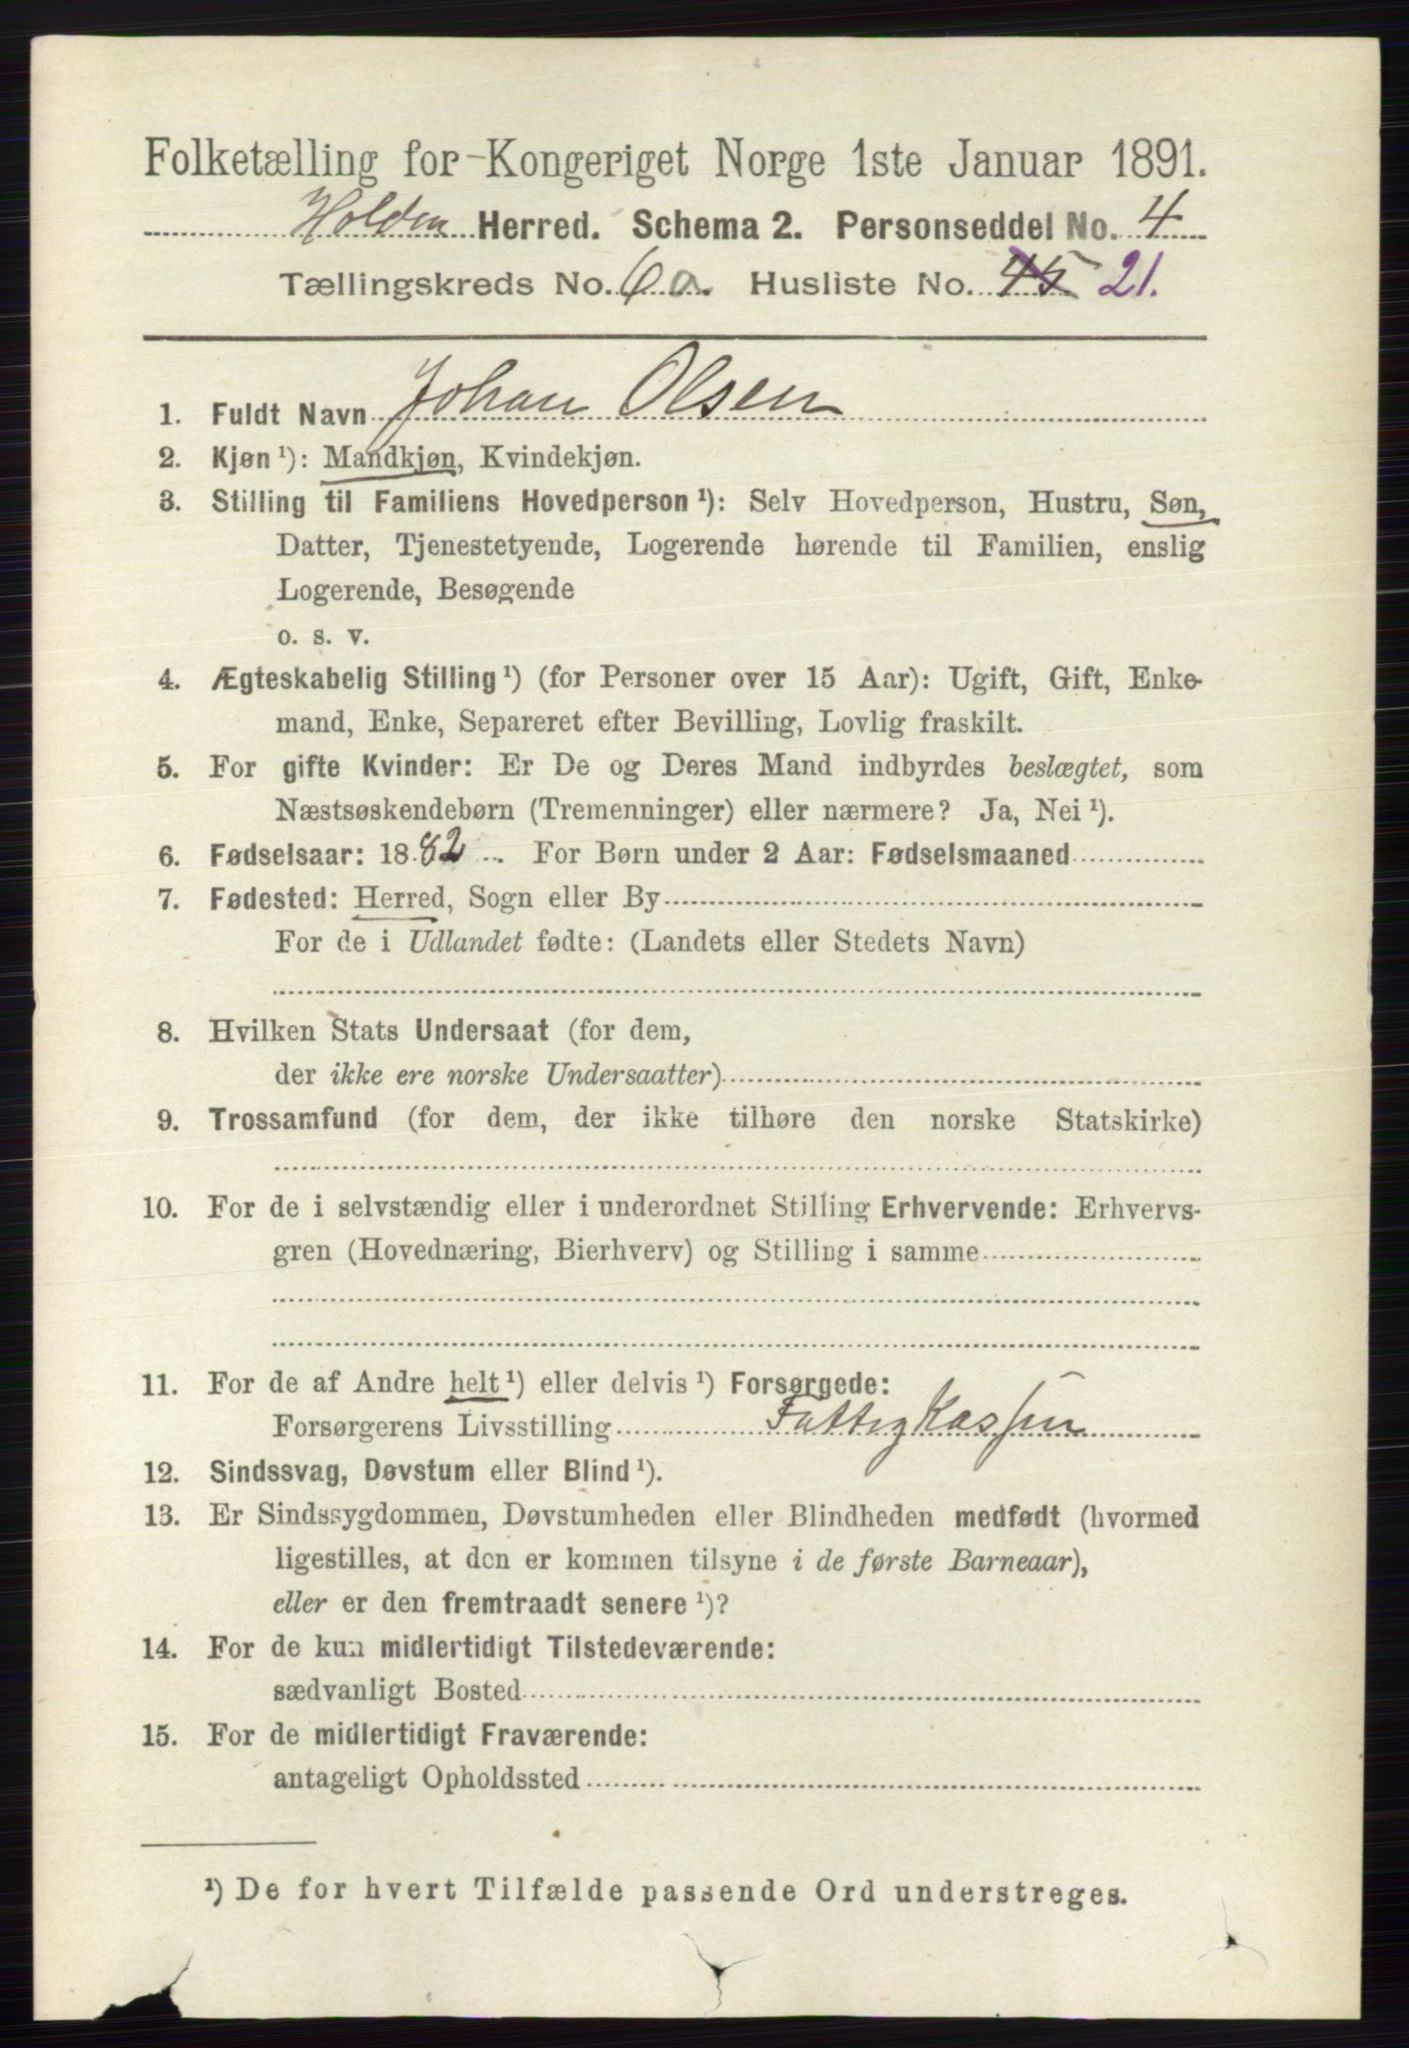 Folketælling for Kongeriget Norge 1ste Januar 1891.
Holden Herred. Schema 2. Personseddel No. 4
Tællingskreds No. 6a. Husliste No. 45 21.
1. Fuldt Navn Johan Olsen
2. Kjøn ¹): Mandkjøn, Kvindekjøn.
3. Stilling til Familiens Hovedperson ¹): Selv Hovedperson, Hustru, Søn,
Datter, Tjenestetyende, Logerende hørende til Familien, enslig
Logerende, Besøgende
o. s. v.
4. Ægteskabelig Stilling ¹) (for Personer over 15 Aar): Ugift, Gift, Enke-
mand, Enke, Separeret efter Bevilling, Lovlig fraskilt.
5. For gifte Kvinder: Er De og Deres Mand indbyrdes beslægtet, som
Næstsøskendebørn (Tremenninger) eller nærmere? Ja, Nei ¹).
6. Fødselsaar: 1882. For Børn under 2 Aar: Fødselsmaaned
7. Fødested: Herred, Sogn eller By
For de i Udlandet fødte: (Landets eller Stedets Navn)
8. Hvilken Stats Undersaat (for dem,
der ikke ere norske Undersaatter)
9. Trossamfund (for dem, der ikke tilhøre den norske Statskirke)
10. For de i selvstændig eller i underordnet Stilling Erhvervende: Erhvervs-
gren (Hovednæring, Bierhverv) og Stilling i samme
11. For de af Andre helt ¹) eller delvis ¹) Forsørgede:
Forsørgerens Livsstilling Fattigkassen
12. Sindssvag, Døvstum eller Blind ¹).
13. Er Sindssygdommen, Døvstumheden eller Blindheden medfødt (hvormed
ligestilles, at den er kommen tilsyne i de første Barneaar),
eller er den fremtraadt senere ¹)?
14. For de kun midlertidigt Tilstedeværende:
sædvanligt Bosted
15. For de midlertidigt Fraværende:
antageligt Opholdssted
¹) De for hvert Tilfælde passende Ord understreges.